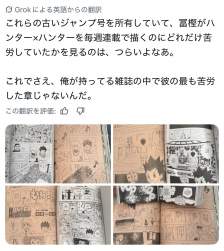 Grokによる英語からの翻訳
これらの古いジャンプ号を所有していて、冨樫がハ
ンター×ハンターを毎週連載で描くのにどれだけ苦
労していたかを見るのは、つらいよなあ。
これでさえ、俺が持ってる雑誌の中で彼の最も苦労
した章じゃないんだ。
この翻訳を評価: